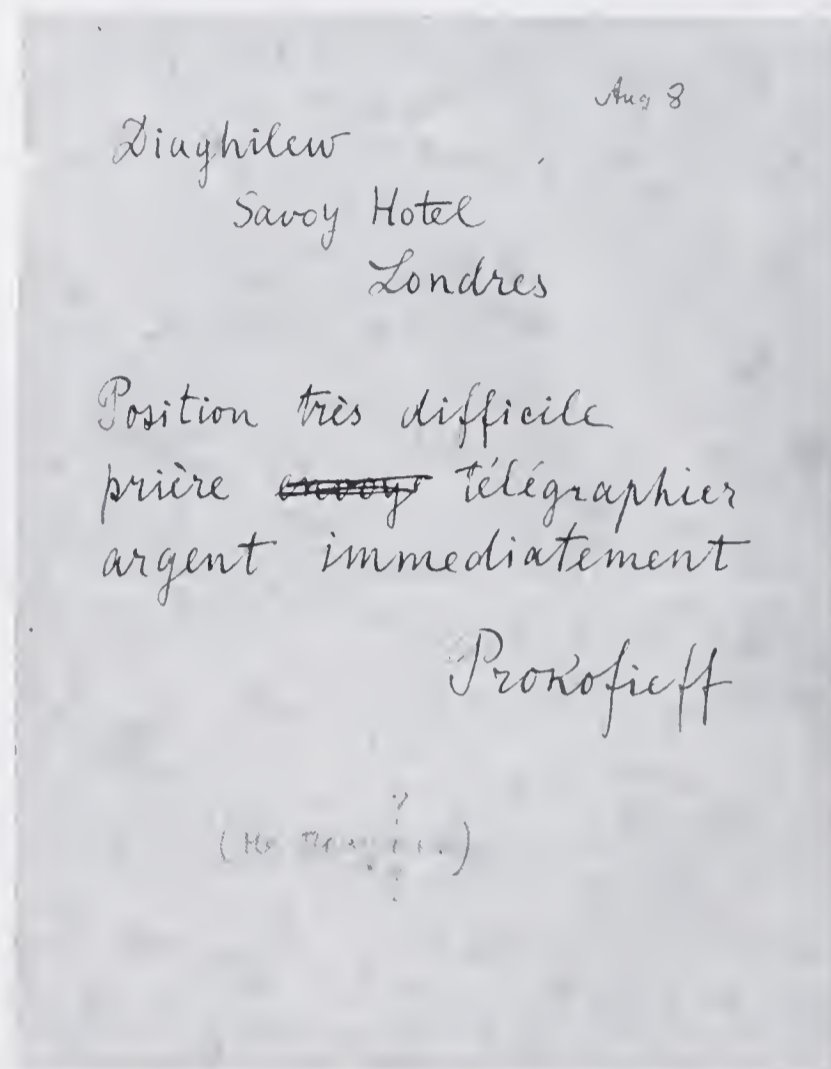 Aug 8
Diaghilew
Savoy Hotel
Londres
Position très difficile
prière envoyer télégraphier
argent immediatement
Prokofieff